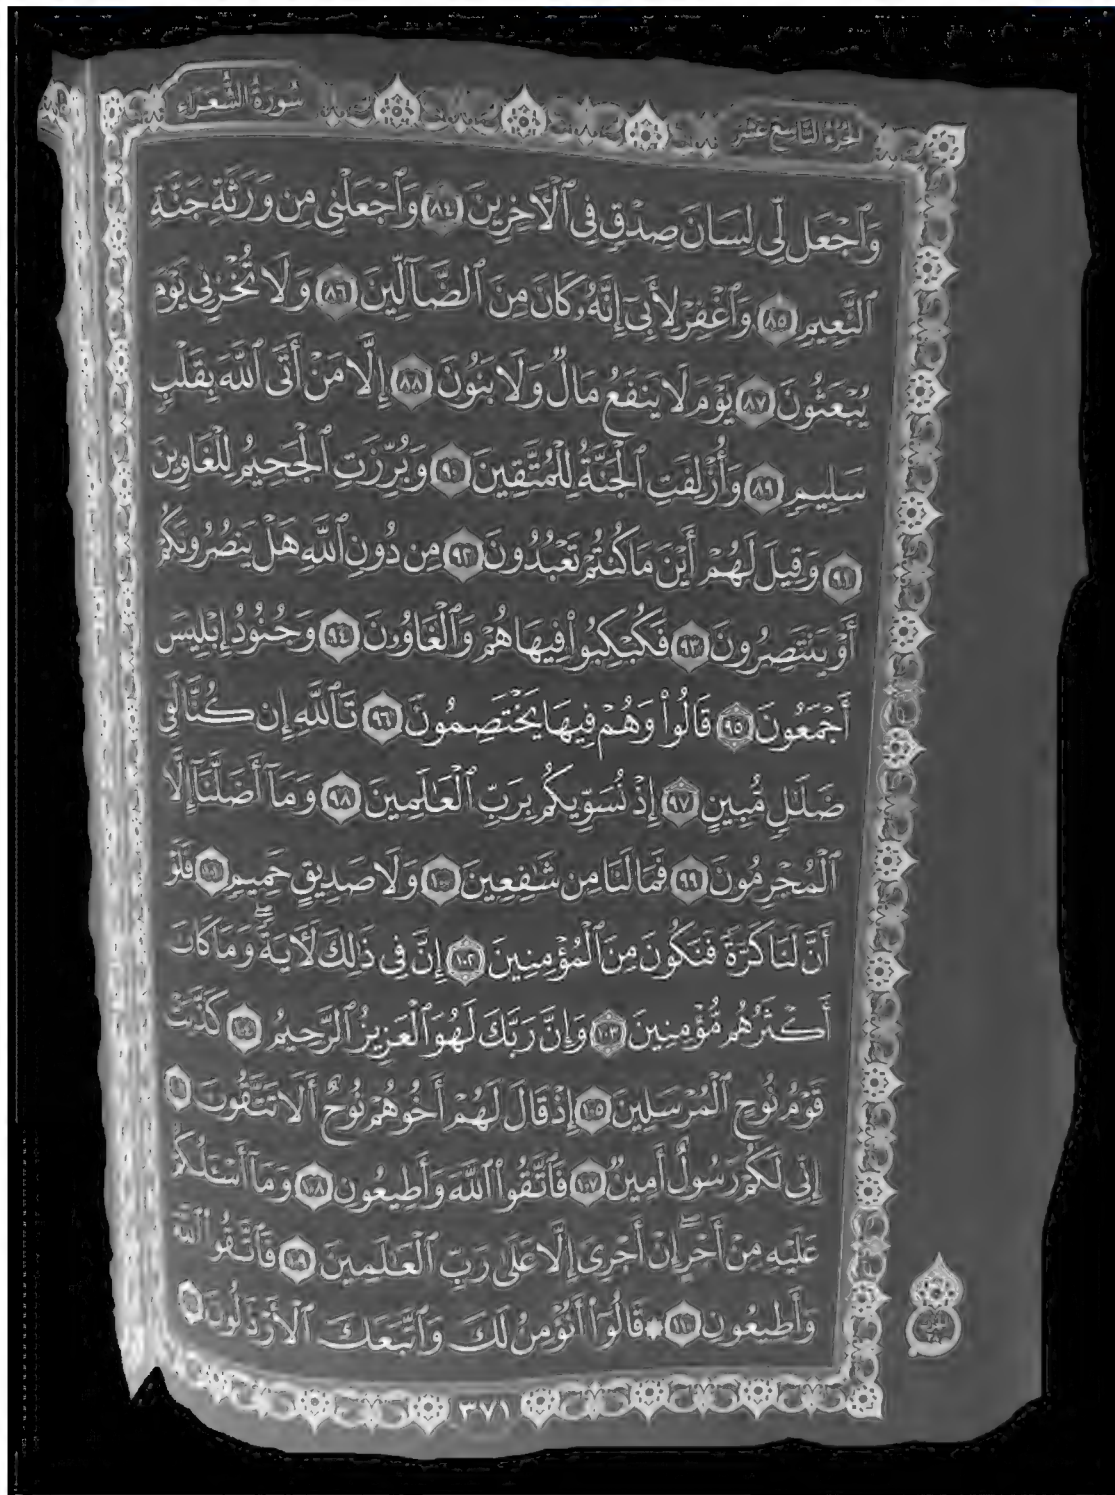 الجزء التاسع عشر
سورة الشعراء
وَٱجْعَل لِّى لِسَانَ صِدْقٍ فِى ٱلْءَاخِرِينَ ٨٤ وَٱجْعَلْنِى مِن وَرَثَةِ جَنَّةِ
ٱلنَّعِيمِ ٨٥ وَٱغْفِرْ لِأَبِىٓ إِنَّهُۥ كَانَ مِنَ ٱلضَّآلِّينَ ٨٦ وَلَا تُخْزِنِى يَوْمَ
يُبْعَثُونَ ٨٧ يَوْمَ لَا يَنفَعُ مَالٌ وَلَا بَنُونَ ٨٨ إِلَّا مَنْ أَتَى ٱللَّهَ بِقَلْبٍ
سَلِيمٍ ٨٩ وَأُزْلِفَتِ ٱلْجَنَّةُ لِلْمُتَّقِينَ ٩٠ وَبُرِّزَتِ ٱلْجَحِيمُ لِلْغَاوِينَ
٩١ وَقِيلَ لَهُمْ أَيْنَ مَا كُنتُمْ تَعْبُدُونَ ٩٢ مِن دُونِ ٱللَّهِ هَلْ يَنصُرُونَكُمْ
أَوْ يَنتَصِرُونَ ٩٣ فَكُبْكِبُوا۟ فِيهَا هُمْ وَٱلْغَاوُۥنَ ٩٤ وَجُنُودُ إِبْلِيسَ
أَجْمَعُونَ ٩٥ قَالُوا۟ وَهُمْ فِيهَا يَخْتَصِمُونَ ٩٦ تَٱللَّهِ إِن كُنَّا لَفِى
ضَلَٰلٍ مُّبِينٍ ٩٧ إِذْ نُسَوِّيكُم بِرَبِّ ٱلْعَٰلَمِينَ ٩٨ وَمَآ أَضَلَّنَآ إِلَّا
ٱلْمُجْرِمُونَ ٩٩ فَمَا لَنَا مِن شَٰفِعِينَ ١٠٠ وَلَا صَدِيقٍ حَمِيمٍ ١٠١ فَلَوْ
أَنَّ لَنَا كَرَّةً فَنَكُونَ مِنَ ٱلْمُؤْمِنِينَ ١٠٢ إِنَّ فِى ذَٰلِكَ لَءَايَةً ۖ وَمَا كَانَ
أَكْثَرُهُم مُّؤْمِنِينَ ١٠٣ وَإِنَّ رَبَّكَ لَهُوَ ٱلْعَزِيزُ ٱلرَّحِيمُ ١٠٤ كَذَّبَتْ
قَوْمُ نُوحٍ ٱلْمُرْسَلِينَ ١٠٥ إِذْ قَالَ لَهُمْ أَخُوهُمْ نُوحٌ أَلَا تَتَّقُونَ ١٠٦
إِنِّى لَكُمْ رَسُولٌ أَمِينٌ ١٠٧ فَٱتَّقُوا۟ ٱللَّهَ وَأَطِيعُونِ ١٠٨ وَمَآ أَسْـَٔلُكُمْ
عَلَيْهِ مِنْ أَجْرٍ ۖ إِنْ أَجْرِىَ إِلَّا عَلَىٰ رَبِّ ٱلْعَٰلَمِينَ ١٠٩ فَٱتَّقُوا۟ ٱللَّهَ
وَأَطِيعُونِ ١١٠ ۞ قَالُوٓا۟ أَنُؤْمِنُ لَكَ وَٱتَّبَعَكَ ٱلْأَرْذَلُونَ ١١١
٣٧١